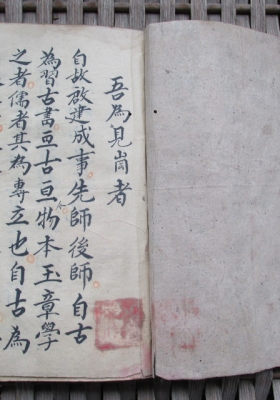 吾為見尚者
自故啟建成事先師後師自古
為習古書亘古亘今物本玉章學
之者儒者其為專立也自古為